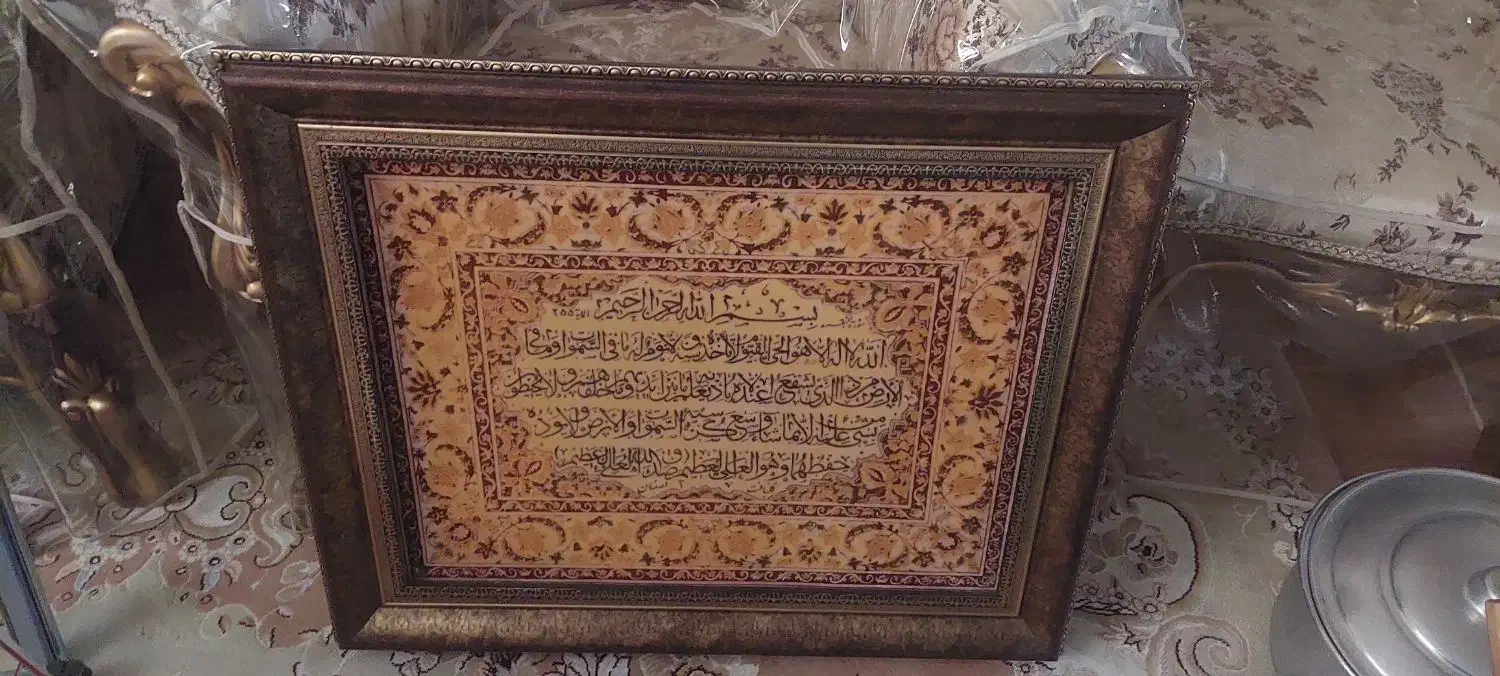 بسم الله الرحمن الرحیم الآیة ۲۵۵
الله لا اله الا هو الحی القیوم لا تأخذه سنة و لا نوم له ما فی السموات و ما فی
الارض من ذا الذی یشفع عنده الا باذنه یعلم ما بین ایدیهم و ما خلفهم و لا یحیطون
بشیء من علمه الا بما شاء وسع کرسیه السموات و الارض و لا یؤده
حفظهما و هو العلی العظیم صدق الله العلی العظیم